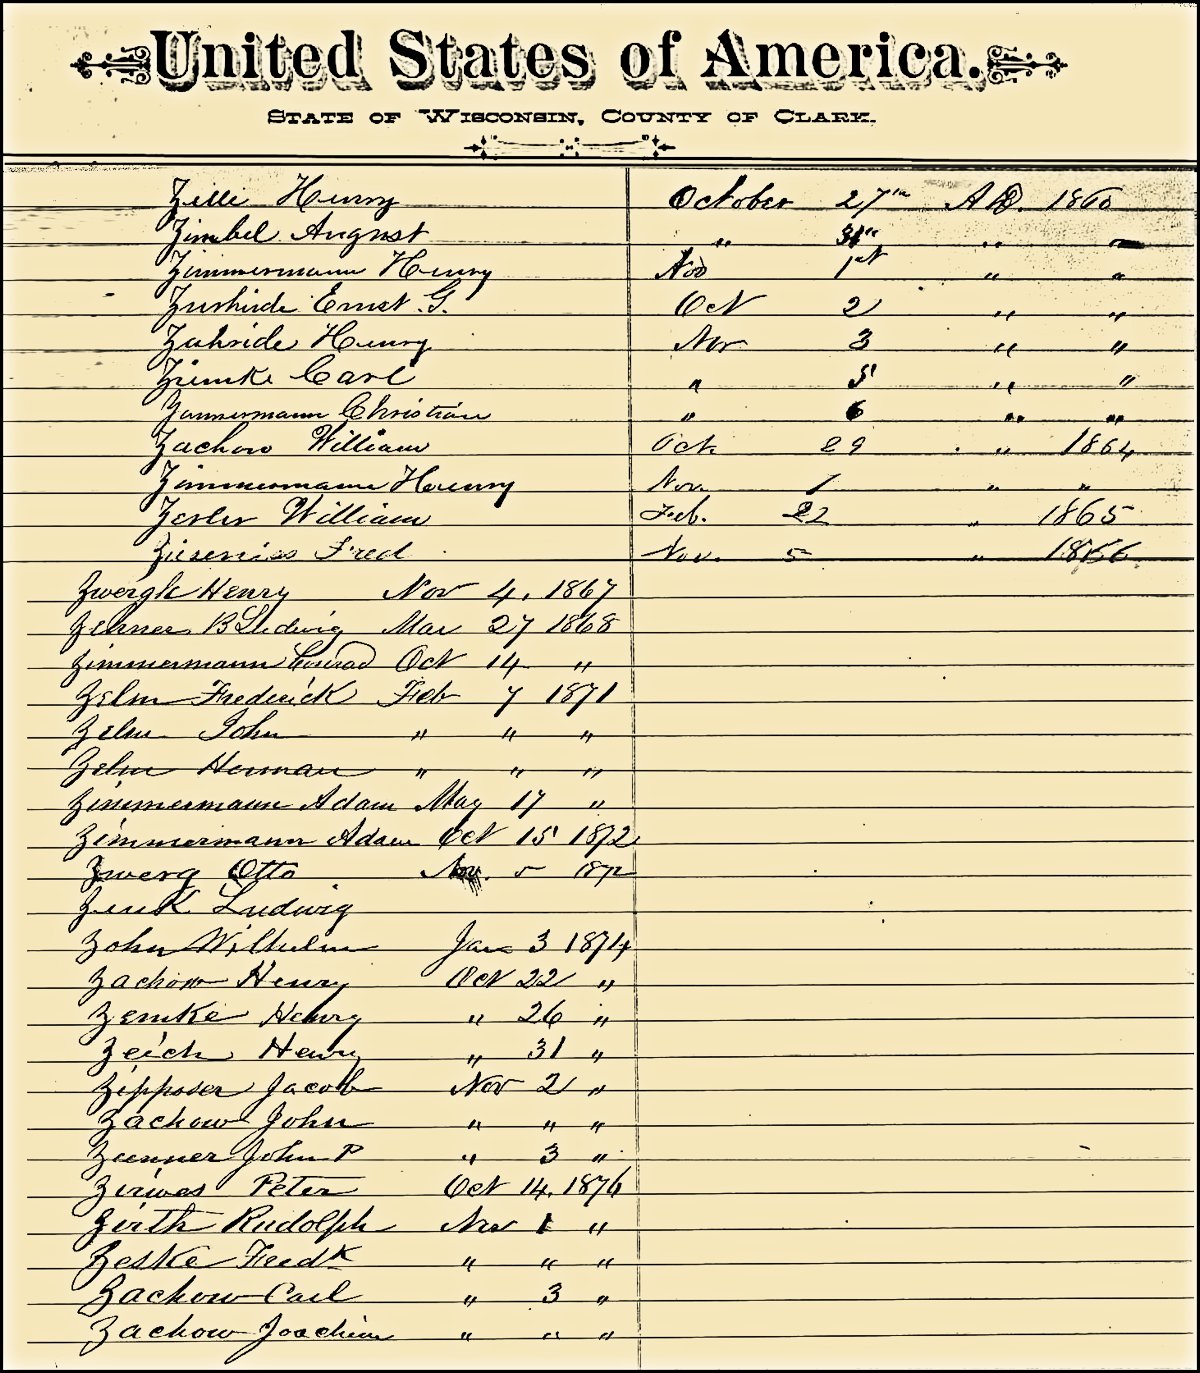 United States of America.
State of Wisconsin, County of Clark.
Zelli Henry October 27th A.D. 1860
Zimbel August " 31st " "
Zimmermann Henry Nov 1st " "
Ernst G. Oct 2 " "
Zahride Henry Nov 3 " "
Ziemke Carl " 5 " "
Zammermann Christian " 6 " "
Zachow William Oct. 29 " 1864
Zimmermann Henry Nov. 1 " "
Zesler William Feb. 22 " 1865
Zieseniss Fred Nov. 5 " 1866
Zwergk Henry Nov 4, 1867
Zehner B Ludwig Mar 27 1868
Zimmermann Conrad Oct 14 "
Zelm Frederick Feb 7 1871
Zelm John " " "
Zelm Herman " " "
Zimmermann Adam May 17 "
Zimmermann Adam Oct 15 1872
Zwerg Otto Nov. 5 1872
Zenk Ludwig
Zohn Wilhelm Jan 3 1874
Zachow Henry Oct 22 "
Zemke Henry " 26 "
Zeich Henry " 31 "
Zipposer Jacob Nov 2 "
Zachow John " " "
Zunner John P " 3 "
Zirwes Peter Oct 14, 1876
Zirth Rudolph Nov 1 "
Zeske Fredk " " "
Zachow Carl " 3 "
Zachow Joachim " " "